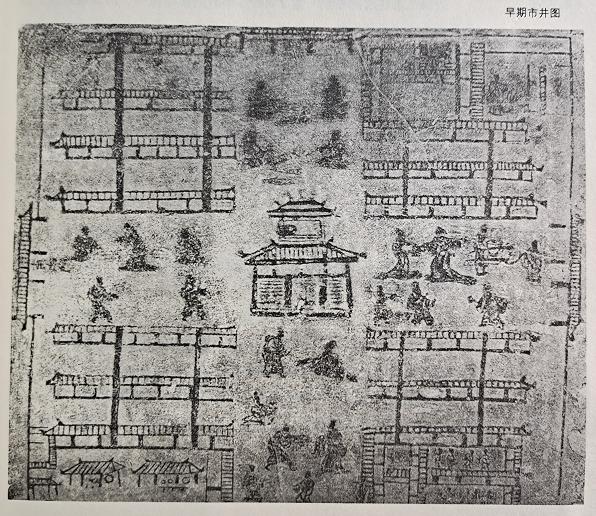 早期市井图